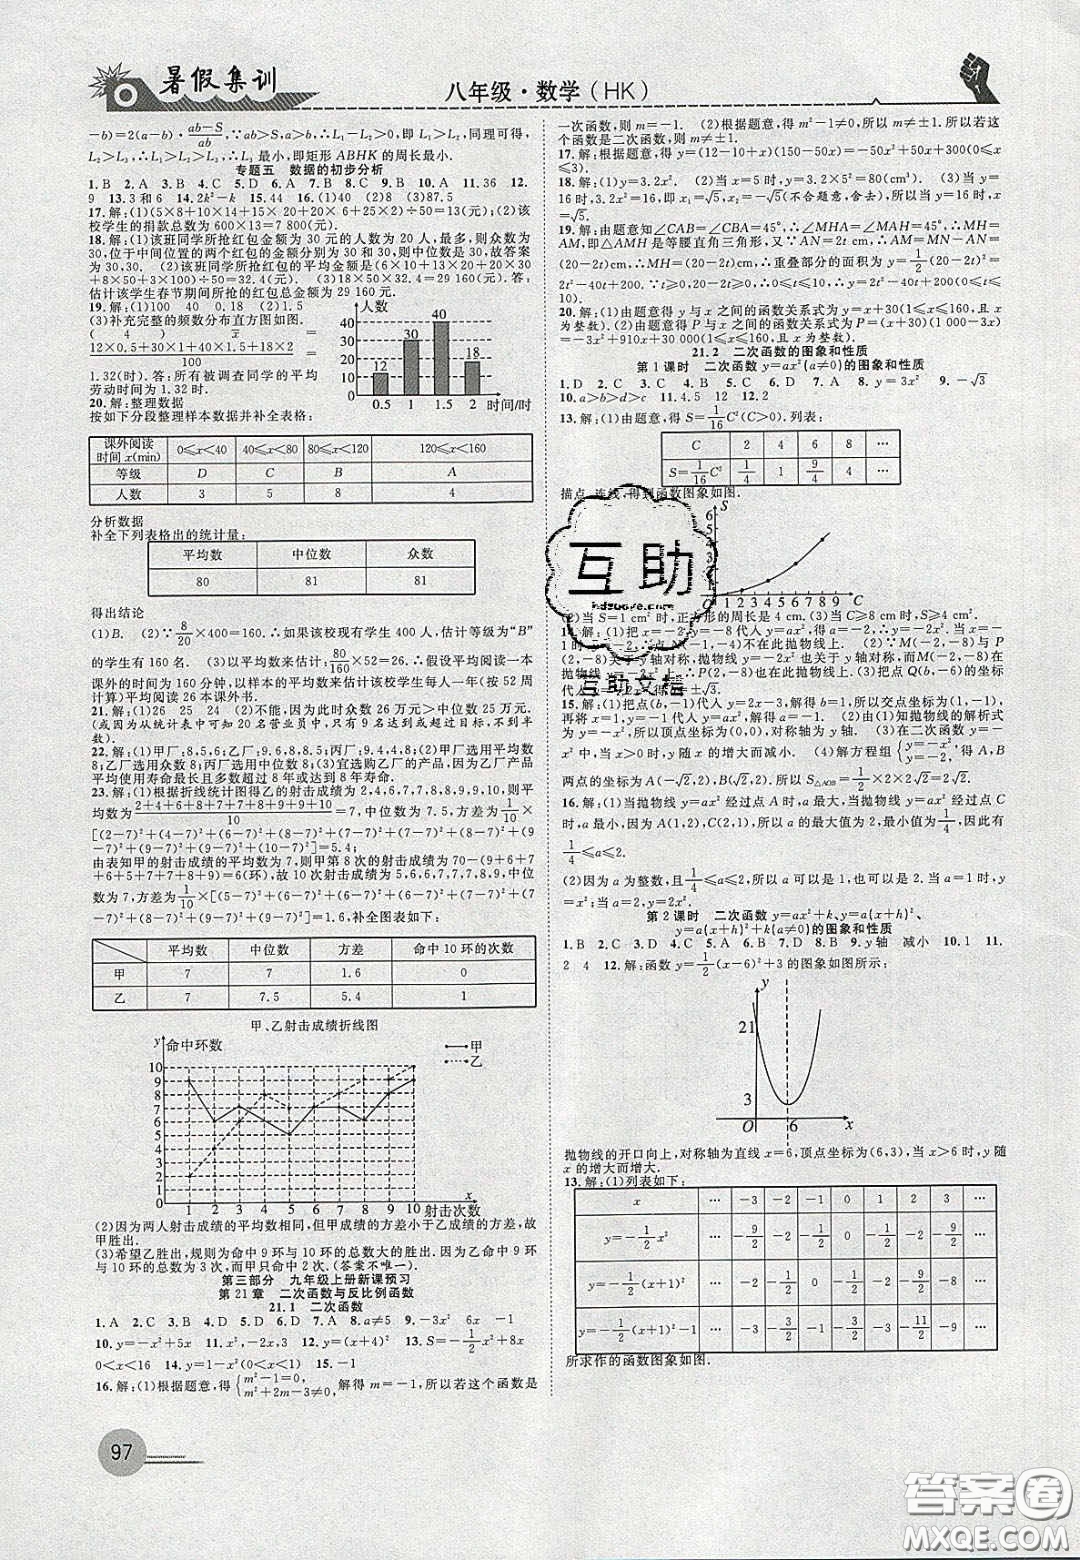 暑假集训
八年级·数学(HK)
-b)=2(a-b)·(ab-S)/ab,∵ab>S,a>b,∴L₁-L₂>0,即L₁>L₂,同理可得,
L₂>L₃,∴L₁>L₂>L₃,∴L₃最小,即矩形ABHK的周长最小.
专题五 数据的初步分析
1.B 2.A 3.B 4.C 5.B 6.D 7.B 8.C 9.B 10.A 11.36 12.
9 13.3和6 14.2k²-k 15.44 16.(1)40 (2)8 (3)87.5
17.解:(1)(5×8+10×14+15×20+20×6+25×2)÷50=13(元);(2)该
校学生的捐款总数为600×13=7 800(元).
18.解:(1)该班同学所抢红包金额为30元的人数为20人,最多,则众数为
30,位于中间位置的两个红包的金额分别为30和30,则中位数是30,故答案
为30,30. (2)该班同学所抢红包的平均金额为(6×10+13×20+20×30
+8×50+3×100)÷50=32.4(元). (3)18×50×32.4=29 160(元).答:
估计该学生春节期间所抢的红包总金额为29 160元.
19.解:(1)100 40 0.18 (2)1.5
(3)补充完整的频数分布直方图如图.
(4) x̄ =
(12×0.5+30×1+40×1.5+18×2)/100 =
1.32(时).答:所有被调查同学的平均
劳动时间为1.32时.
人数
40
30
20
10
0
12
30
40
18
0.5 1 1.5 2 时间/时
20.解:整理数据
按如下分段整理样本数据并补全表格:
课外阅读时间x(min) 0≤x<40 40≤x<80 80≤x<120 120≤x<160
等级 D C B A
人数 3 5 8 4
分析数据
补全下列表格出的统计量:
平均数 中位数 众数
80 81 81
得出结论
(1)B. (2)∵8/20×400=160.∴如果该校现有学生400人,估计等级为“B”
的学生有160名. (3)以平均数来估计:80/160×52=26.∴假设平均阅读一本
课外的时间为160分钟,以样本的平均数来估计该校学生每人一年(按52周
计算)平均阅读26本课外书.
21.解:(1)26 25 24 (2)不能,因为此时众数26万元>中位数25万元.
(或因为从统计表中可知20名营业员中,只有9名达到或超过目标,不到半
数).
22.解:(1)甲厂:8,5,6;乙厂:9.6,8.5,8;丙厂:9.4,4,8. (2)甲厂选用平均数
8;乙厂选用众数8;丙厂选用中位数8;(3)宜选购乙厂的产品,因为乙厂产品
平均使用寿命最长且多数超过8年或达到8年寿命.
23.解:(1)根据折线统计图得乙的射击成绩为2,4,6,7,7,8,8,9,9,10,则平
均数为(2+4+6+7+7+8+8+9+9+10)/10=7,中位数为7.5,方差为1/10
×[(2-7)²+(4-7)²+(6-7)²+(7-7)²+(7-7)²+(8-7)²+(8-7)²+(9
-7)²+(9-7)²+(10-7)²]=5.4;
由表知甲的射击成绩的平均数为7,则甲第8次的射击成绩为70-(9+6+7
+6+5+7+7+8+9)=6(环),故10次射击成绩为5,6,6,6,7,7,7,8,9,9,中位
数为7,方差为1/10×[(5-7)²+(6-7)²+(6-7)²+(6-7)²+(7-7)²+(7-
7)²+(7-7)²+(8-7)²+(9-7)²+(9-7)²]=1.6,补全图表如下:
平均数 中位数 方差 命中10环的次数
甲 7 7 1.6 0
乙 7 7.5 5.4 1
甲、乙射击成绩折线图
y 命中环数
甲
乙
10
9
8
7
6
5
4
3
2
1
0
1 2 3 4 5 6 7 8 9 10 x
射击次数
(2)因为两人射击成绩的平均数相同,但甲成绩的方差小于乙成绩的方差,故
甲胜出.
(3)希望乙胜出,规则为命中9环与10环的总数大的胜出.因为乙命中9环与
10环的总数为3次,而甲只命中2次.(答案不唯一).
第三部分 九年级上册新课预习
第21章 二次函数与反比例函数
21.1 二次函数
1.A 2.C 3.B 4.D 5.C 6.D 7.B 8.a≠5 9.-3x² 6x -1
10.y=-x²+5x 11.x²,-2x,3 12.y=(x+4)² 13.S=-1/2x²+8x
0<x<16 14.y=2√x-x²(0<x<1) 15.-1
16.解:(1)根据题意,得{m²-1=0, m²+2m-3≠0, 解得m=-1,所以若这个函数是
一次函数,则m=-1. (2)根据题意,得m²-1≠0,所以m≠±1.所以若这
个函数是二次函数,则m≠±1.
17.解:根据题意,得y=(12-10+x)(500-50x)=-50x²+400x+1000(0≤x
≤3).
18.解:(1)y=3.2x². (2)当x=5时,y=3.2×5²=80(cm). (3)当y=16
时,3.2x²=16,解得x₁=√5,x₂=-√5(不合题意,舍去),所以当y=16时,x
=√5.
19.解:由题意知∠CAB=∠CBA=45°,∴∠MAH=∠CAB=45°,∴MH=
AM,即△AMH是等腰直角三角形,又∵AN=2t cm,MN=20 cm,∴MA=
(20-2t)cm,∴MH=(20-2t)cm,∴重叠部分的面积为y=1/2(20-2t)²=
2t²-40t+200.∵0≤2t≤20,∴0≤t≤10,∴y=2t²-40t+200(0≤t≤10).
20.解:(1)由题意得y与x之间的函数关系式为y=x+30(1≤x≤160,且x
为整数). (2)由题意得P与x之间的函数关系式为P=(x+30)(1 000-3x)
=-3x²+910x+30 000(1≤x≤160,且x为整数).
21.2 二次函数的图象和性质
第1课时 二次函数y=ax²(a≠0)的图象和性质
1.D 2.C 3.C 4.B 5.C 6.D 7.A 8.y=3x² 9.-√3
10.a>b>d>c 11.4.5 12.2
13.解:(1)由题意,得S=1/16C²(C>0).列表:
C 2 4 6 8 …
S=1/16C² 1/4 1 9/4 4 …
描点,连线,得到函数图象如图.
S
6
5
4
O 1 2 3 4 5 6 7 8 9 C
(2)当S=1 cm²时,正方形的周长是4 cm.(3)当C≥8 cm时,S≥4 cm².
15.解:(1)把点(b,-1)代入y=x-2,解得b=1,所以交点坐标为(1,-1),
再将(1,-1)代入y=ax²,解得a=-1. (2)由(1)知抛物线的解析式
为y=-x²,所以顶点坐标为(0,0),对称轴为y轴. (3)在二次函数y=-
x²中,当x>0时,y随x的增大而减小. (4)解方程组{y=-x², y=-2, 得A,B
两点的坐标为A(-√2,2),B(√2,2).所以S△AOB=1/2×2×2√2=2√2.
16.解:(1)当抛物线y=ax²经过点A时,a最大,当抛物线y=ax²经过点C
时,a最小.因为A(1,2),C(2,1),所以a的最大值为2,最小值为1/4,因此有
1/4≤a≤2.
(2)因为a为整数,且1/4≤a≤2,所以a可以是1,也可以是2.当a=1
时,y=x²;当a=2时,y=2x².
第2课时 二次函数y=ax²+k、y=a(x+h)²、
y=a(x+h)²+k(a≠0)的图象和性质
1.B 2.C 3.D 4.C 5.A 6.D 7.B 8.B 9.y轴 减小 10.1 11.
2 4 12.解:函数y=1/2(x-6)²+3的图象如图所示:
y
21
3
O 6 x
抛物线的开口向上,对称轴为直线x=6,顶点坐标为(6,3),当x>6时,y随
x的增大而增大.
13.解:(1)列表如下:
x … -3 -2 -1 0 1 2 3 …
y=-1/2x² … -9/2 -2 -1/2 0 -1/2 -2 -9/2 …
y=-1/2(x+1)² … -2 -1/2 0 -1/2 -2 -9/2 -8 …
y=-1/2(x+1)²-1 … -3 -3/2 -1 -3/2 -3 -11/2 -9 …
所求作的函数图象如图.
互助
hdzuoye.com
互助文档
97
答案圈
MXQE.COM